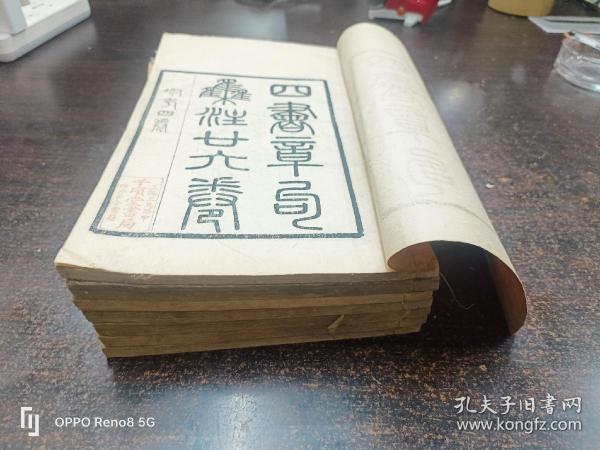 四書章句
集注廿六卷
附考四卷
OPPO Reno8 5G
孔夫子旧书网
www.kongfz.com